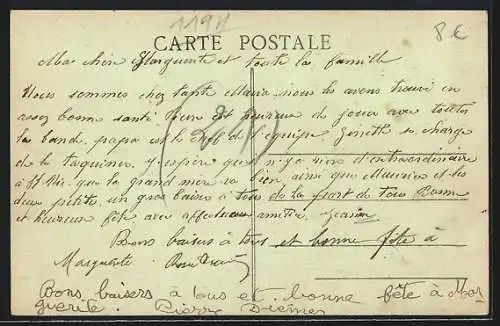 1194
8 €
CARTE POSTALE
Ma chère Marguerite et toute la famille
Nous sommes chez tante Maria nous les avons trouvé en
assez bonne santé Pierre est heureux de jouer avec toute
la bande. papa est le chef de l'équipe se charge
de le taquiner. J'espère que n'y a rien d'extraordinaire
à St que la grand mère va bien, ainsi que Maurice et les
deux petits, un gros baiser à tous de la part de tous Bonne
et heureuse fête avec affectueuse amitié.
Bons baisers à tous et bonne fête à
Marguerite
Bons baisers à tous et bonne fête à Mar
guerite. Pierre